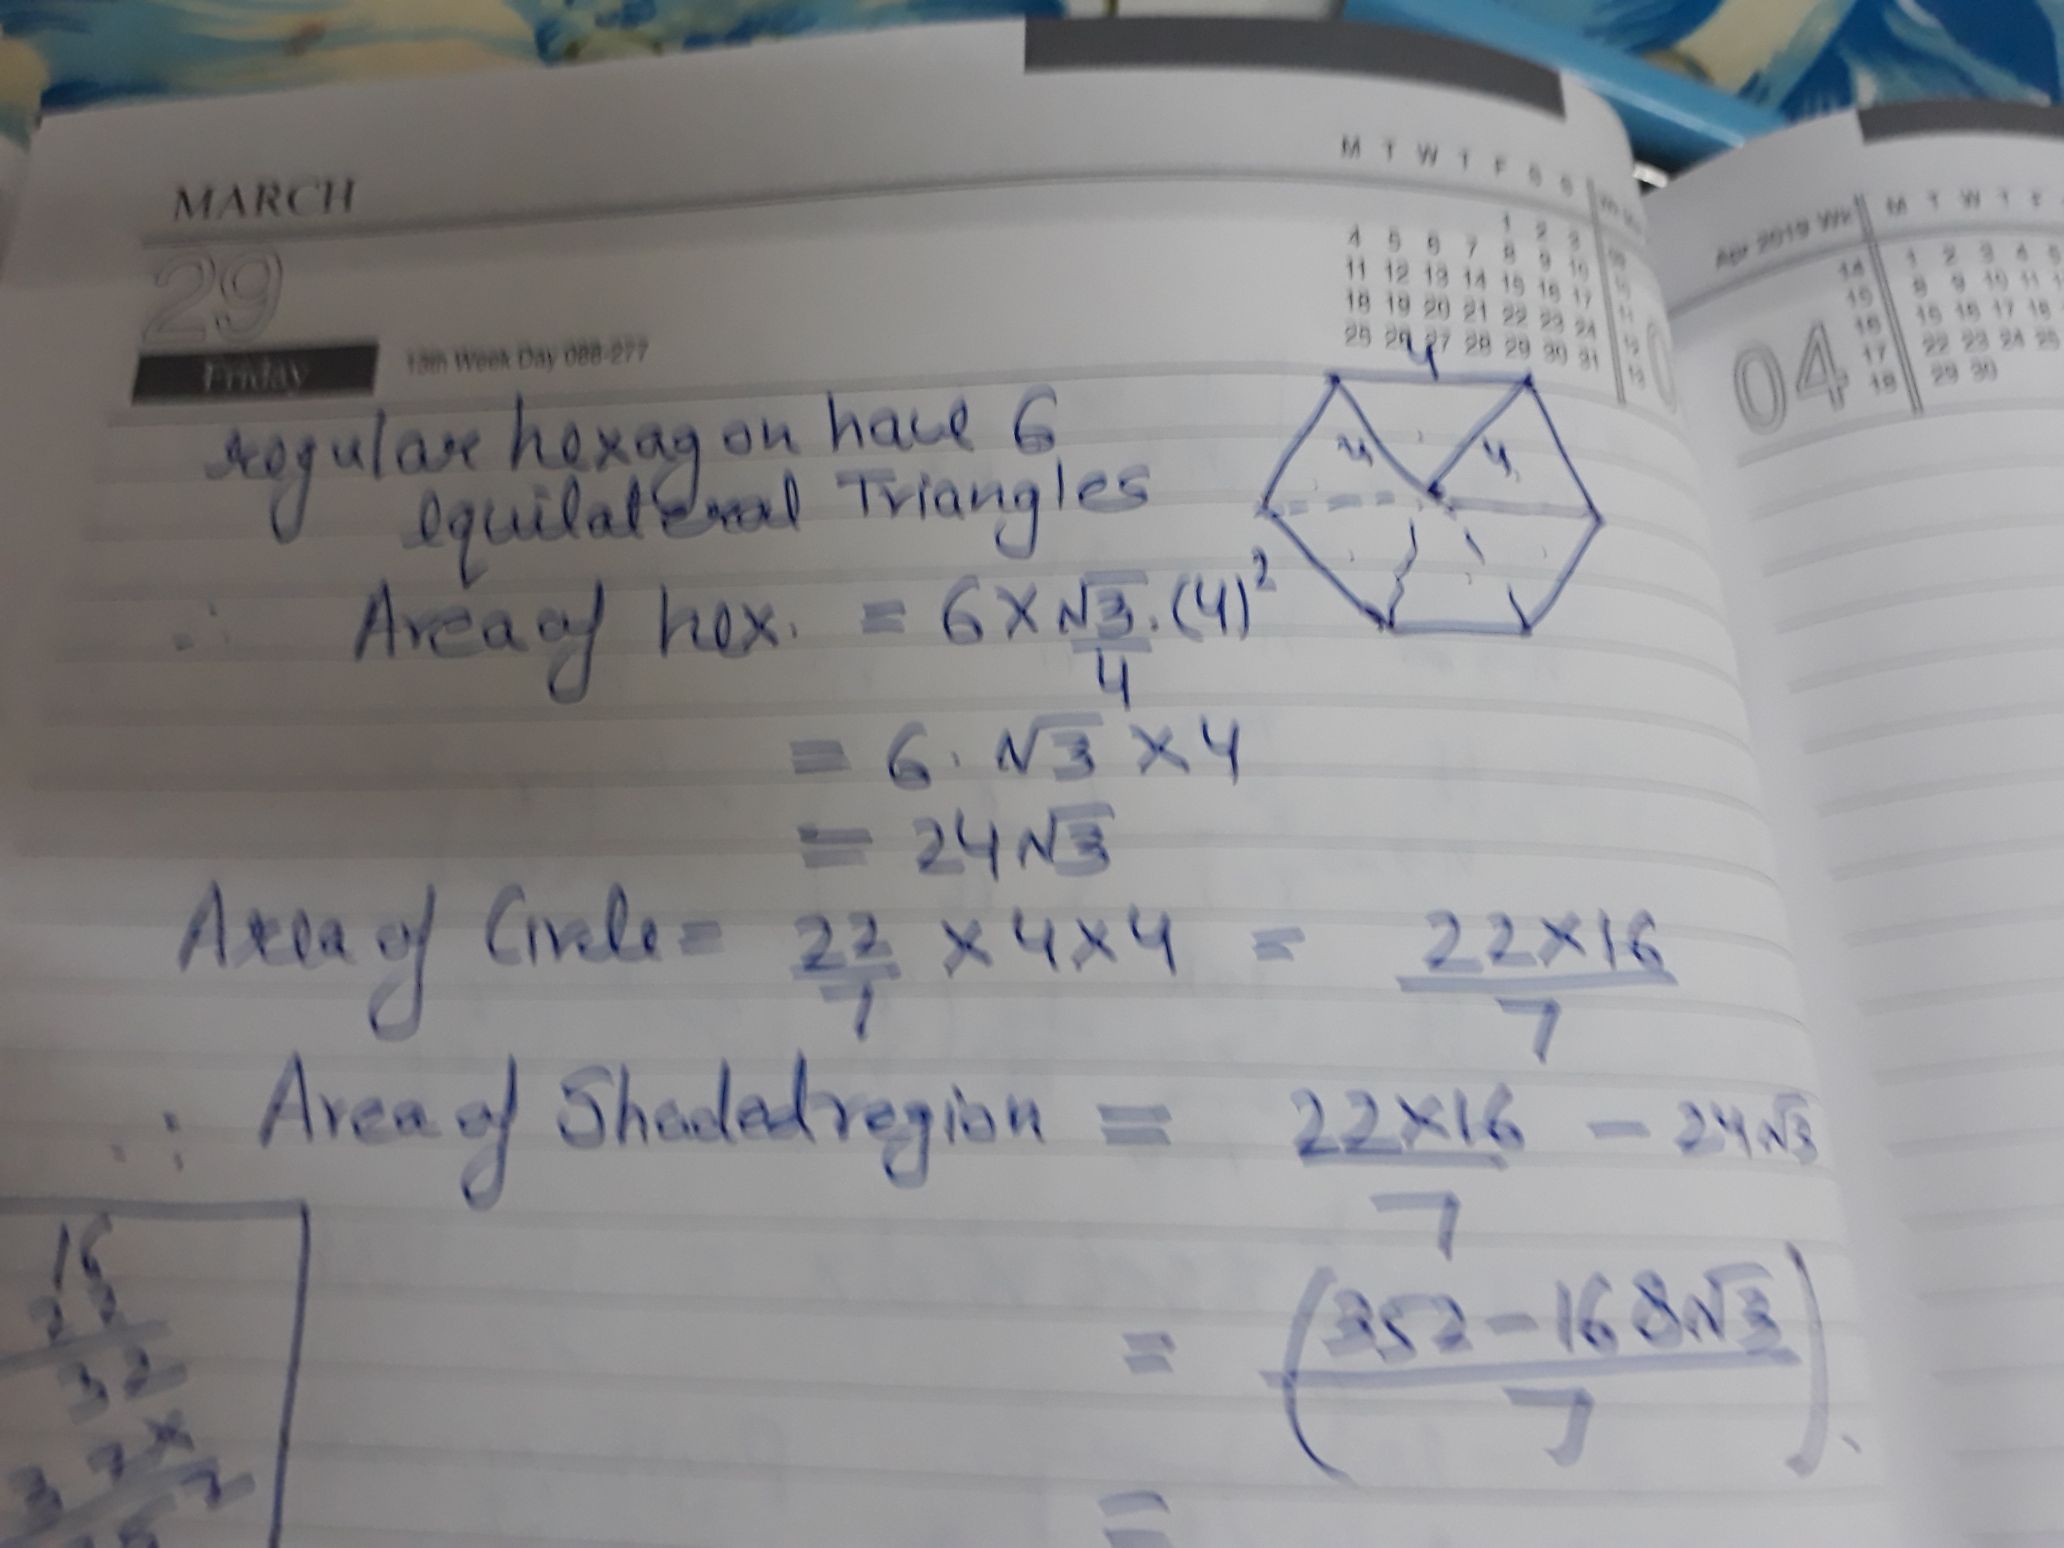 MARCH
M T W T F S S
1 2 3
4 5 6 7 8 9 10
11 12 13 14 15 16 17
18 19 20 21 22 23 24
25 26 27 28 29 30 31
29
Friday
13th Week Day 088-277
Apr 2019 Wk
M T W T F
14 1 2 3 4 5
15 8 9 10 11
16 15 16 17 18
17 22 23 24 25
18 29 30
04
regular hexagon have 6
equilateral Triangles
4
4 4
∴ Area of hex. = 6 × √3/4 . (4)²
= 6 . √3 × 4
= 24√3
Area of Circle = 22/7 × 4 × 4 = 22×16/7
∴ Area of Shaded region = 22×16/7 - 24√3
= (352 - 168√3 / 7).
=
16
22
32